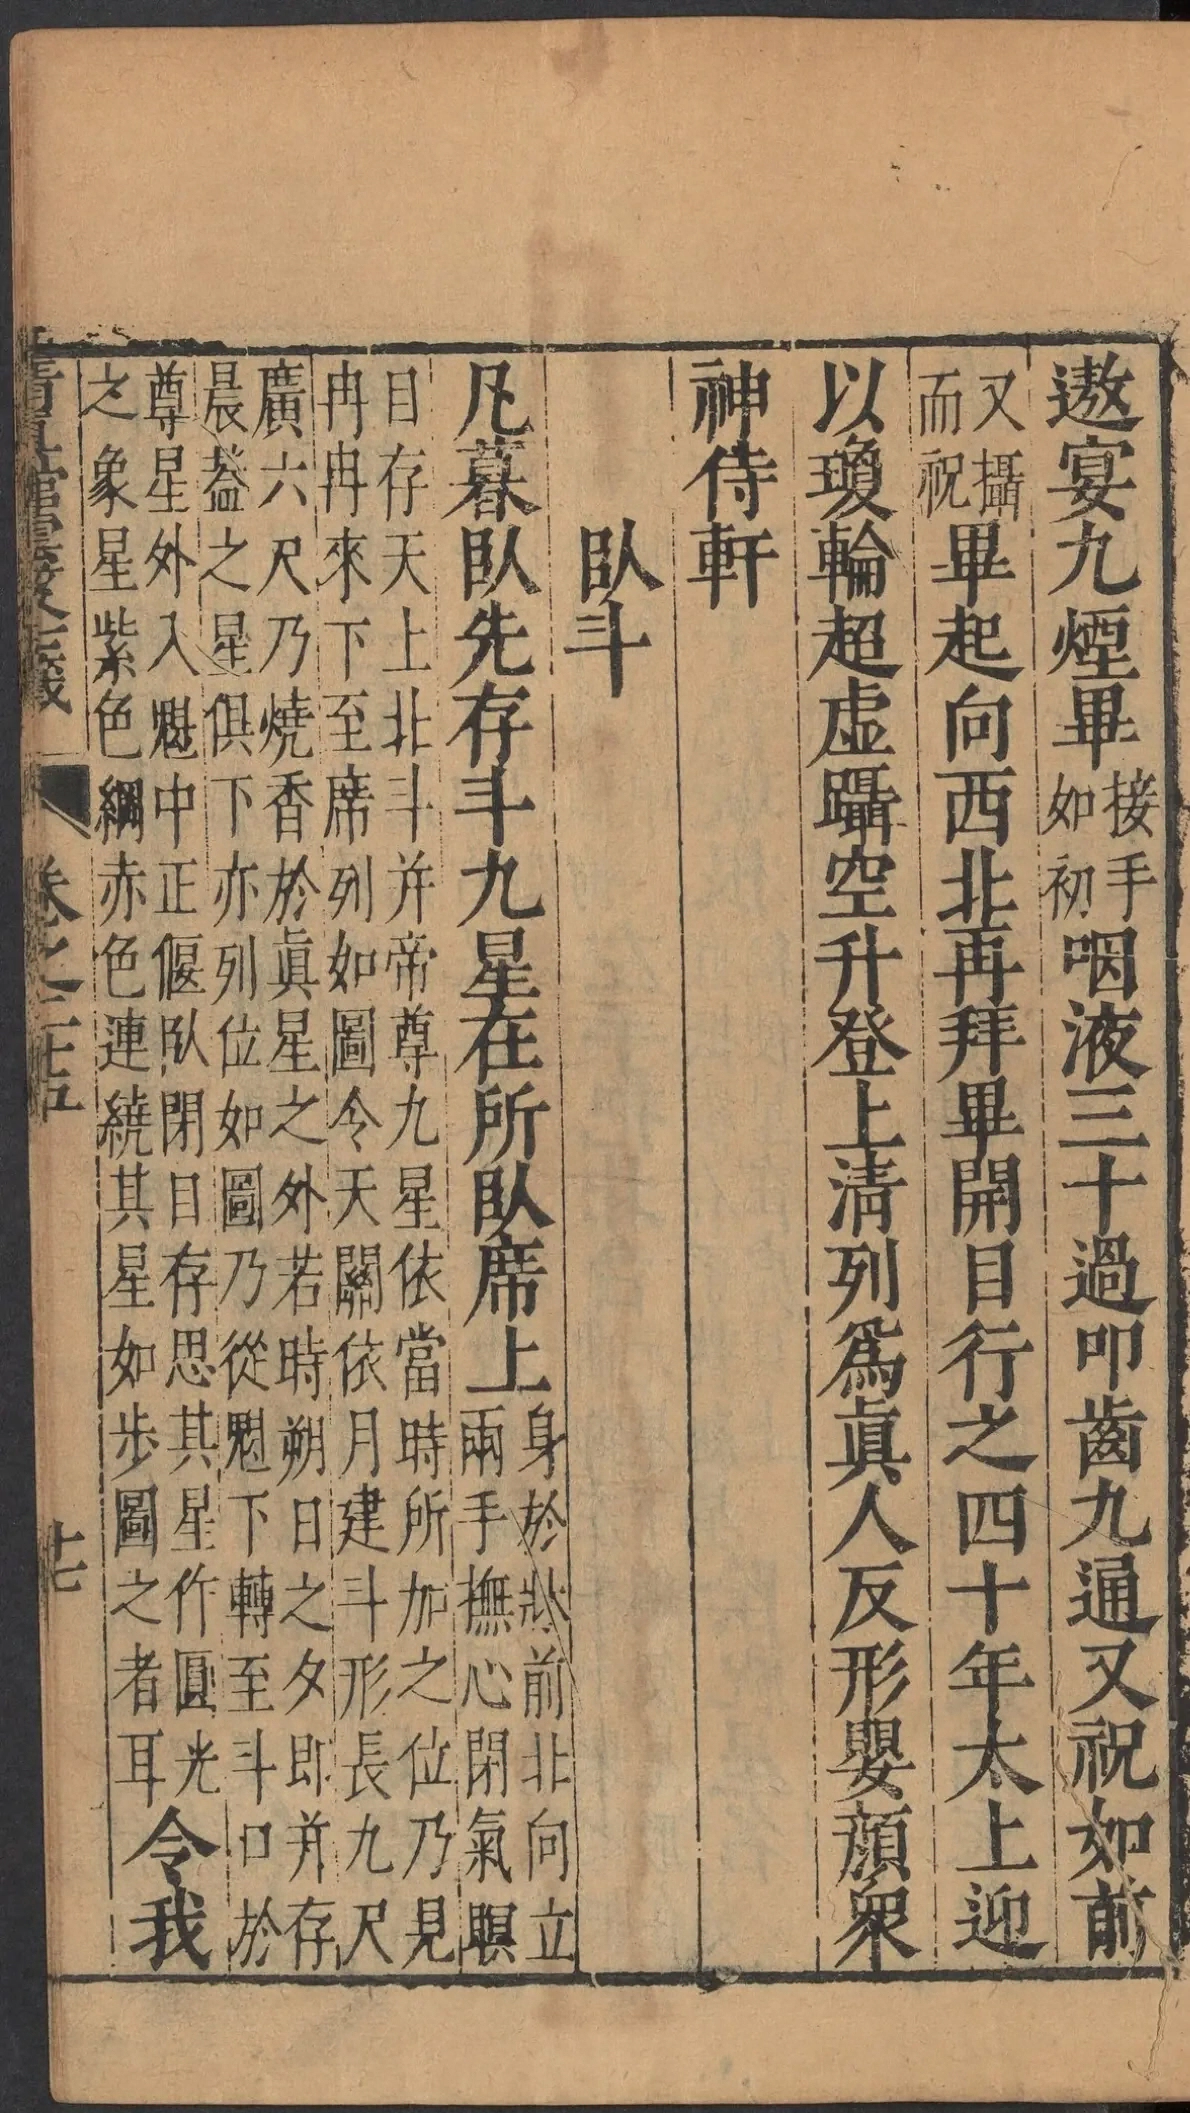 遨宴九煙畢接手如初咽液三十過叩齒九通又祝如前
又攝而祝畢起向西北再拜畢開目行之四十年太上迎
以瓊輪超虛躡空升登上清列爲眞人反形嬰顔衆
神侍軒
臥斗
凡暮臥先存斗九星在所臥席上身於牀前北向立兩手撫心閉氣瞑
目存天上北斗并帝尊九星依當時所加之位乃見冉冉來下至席列如圖令天關依月建斗形長九尺
廣六尺乃燒香於眞星之外若時朔日之夕即并存晨葢之星俱下亦列位如圖乃從魁下轉至斗口於
尊星外入魁中正偃臥閉目存思其星作圓光之象星紫色綱赤色連繞其星如步圖之者耳令我
卷之二十五
十七